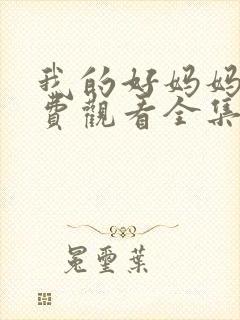 我的好妈妈
费觀看全集
冕璽葉